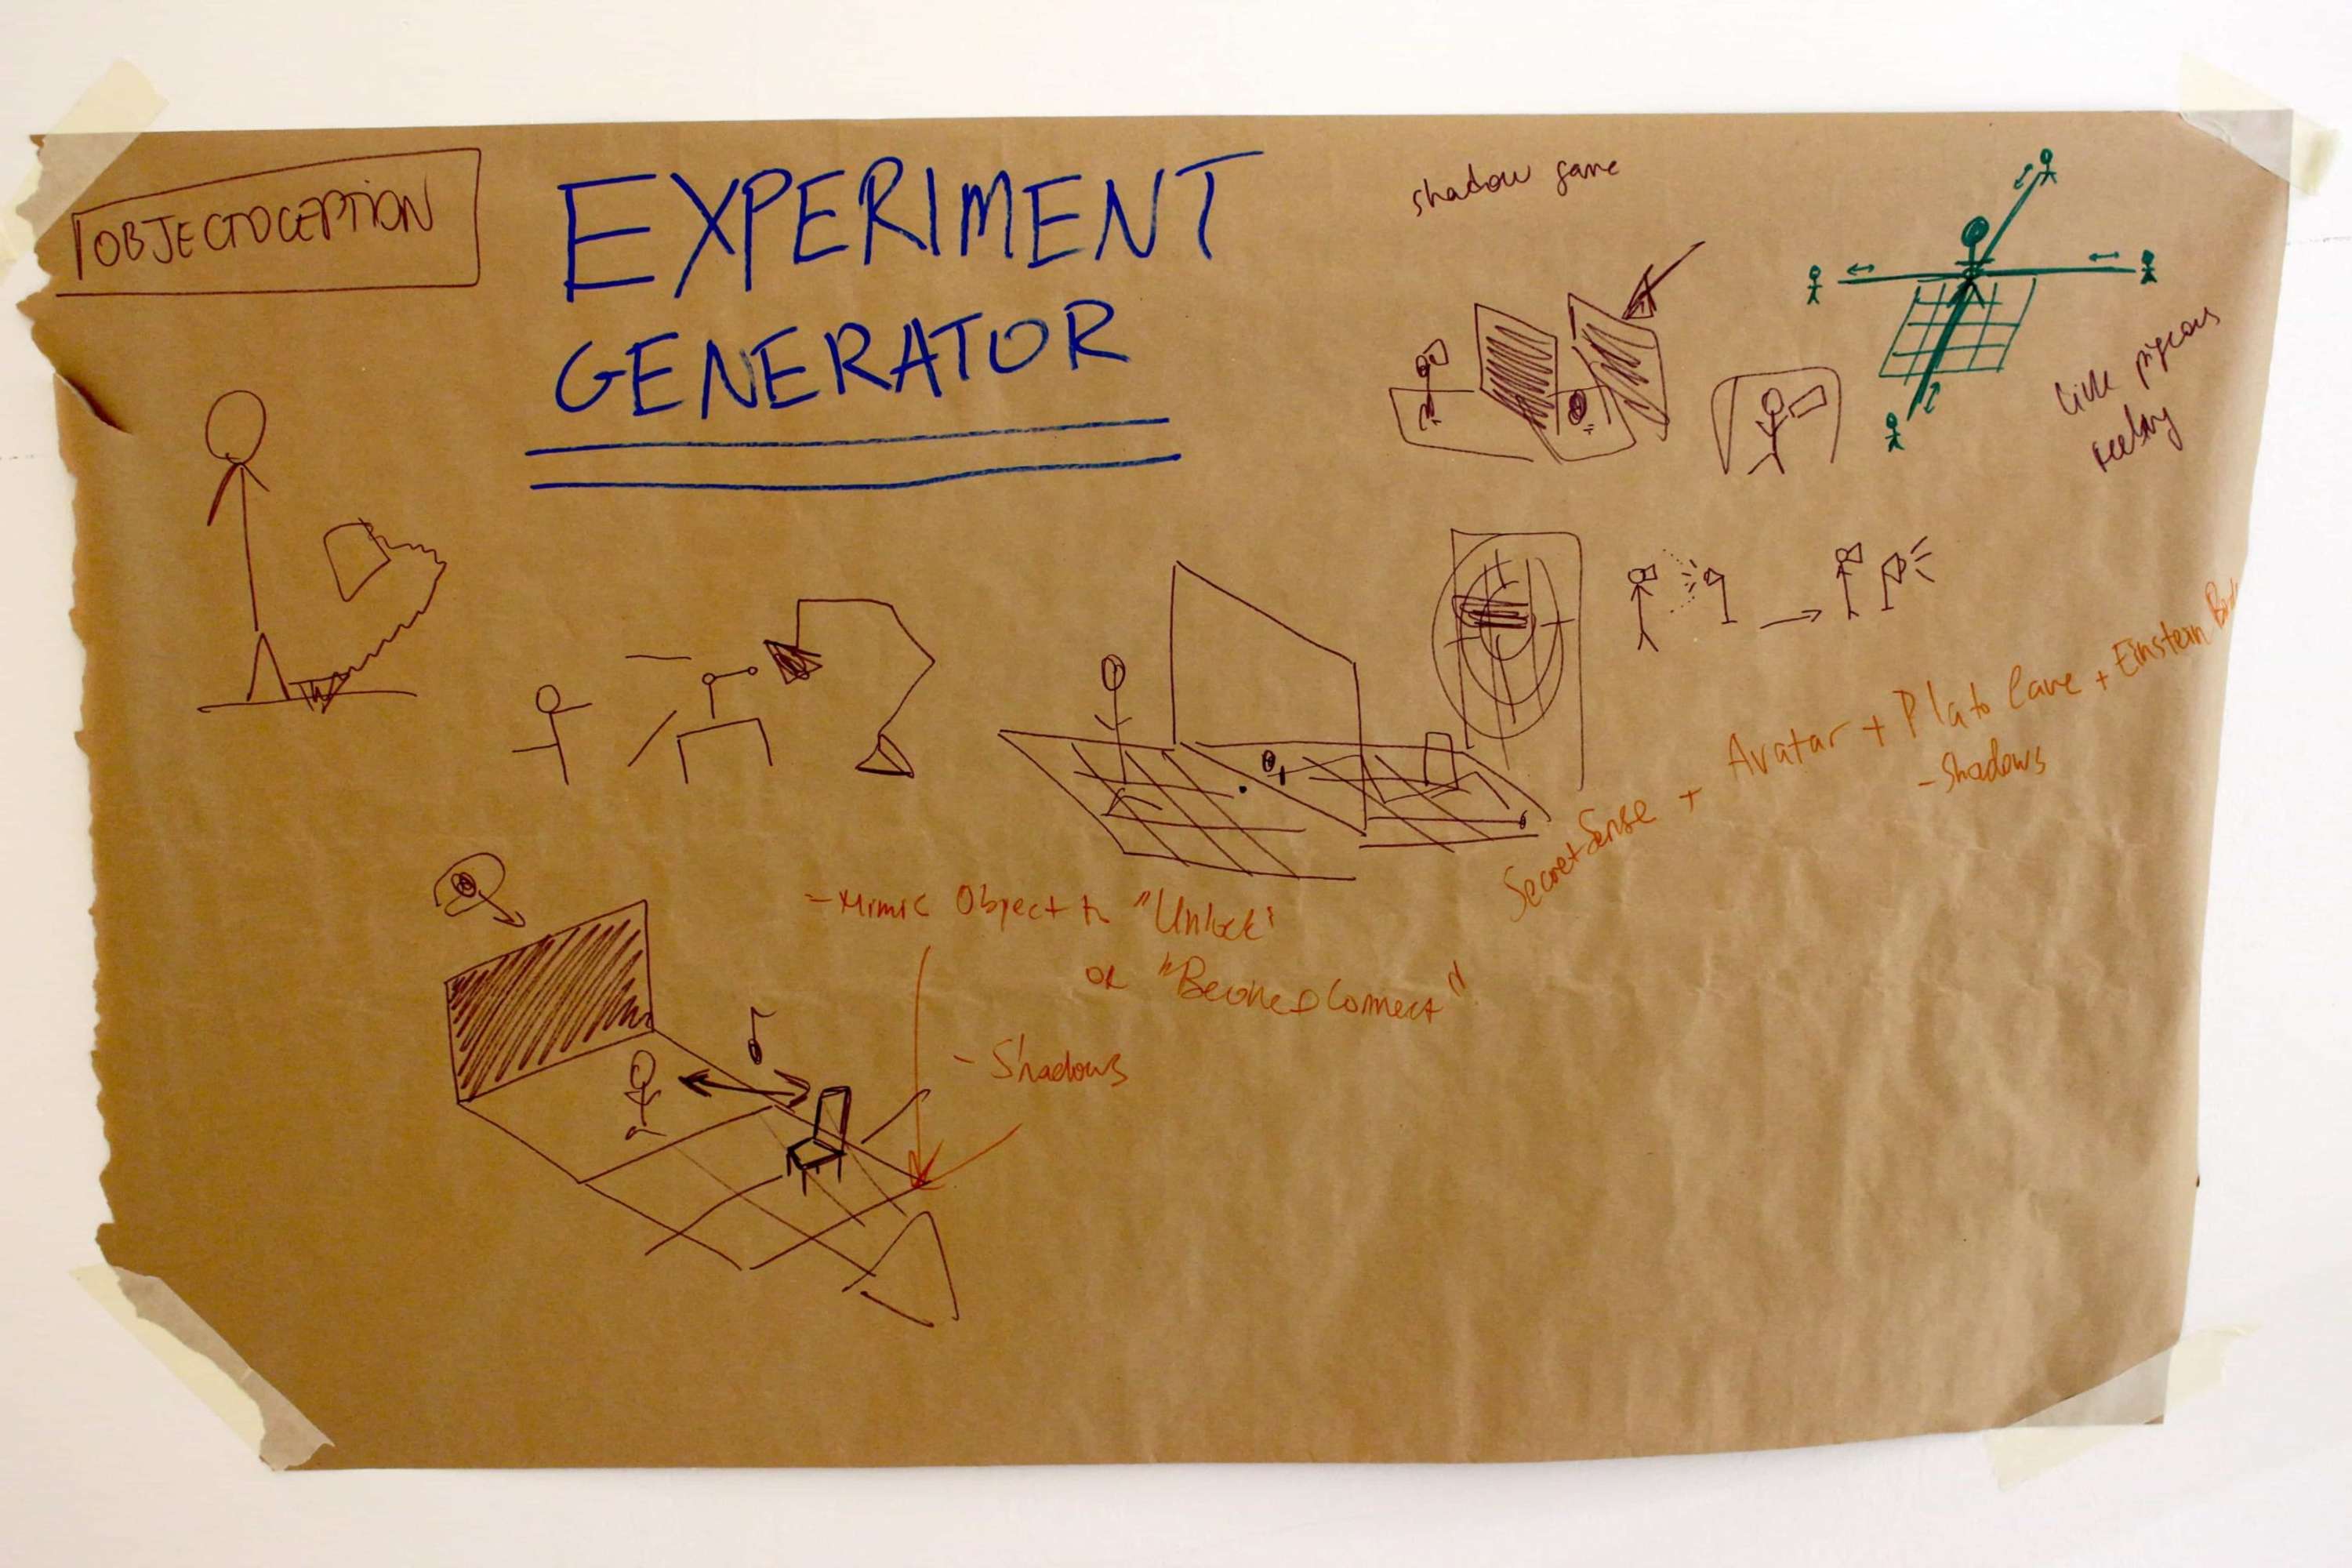 OBJECTOCEPTION
EXPERIMENT
GENERATOR
shadow game
little pigeons
Secret Sense + Avatar + Plato Cave + Einstein
- Shadows
- Mimic Object to "Unlock"
or "Become + Connect"
- Shadows